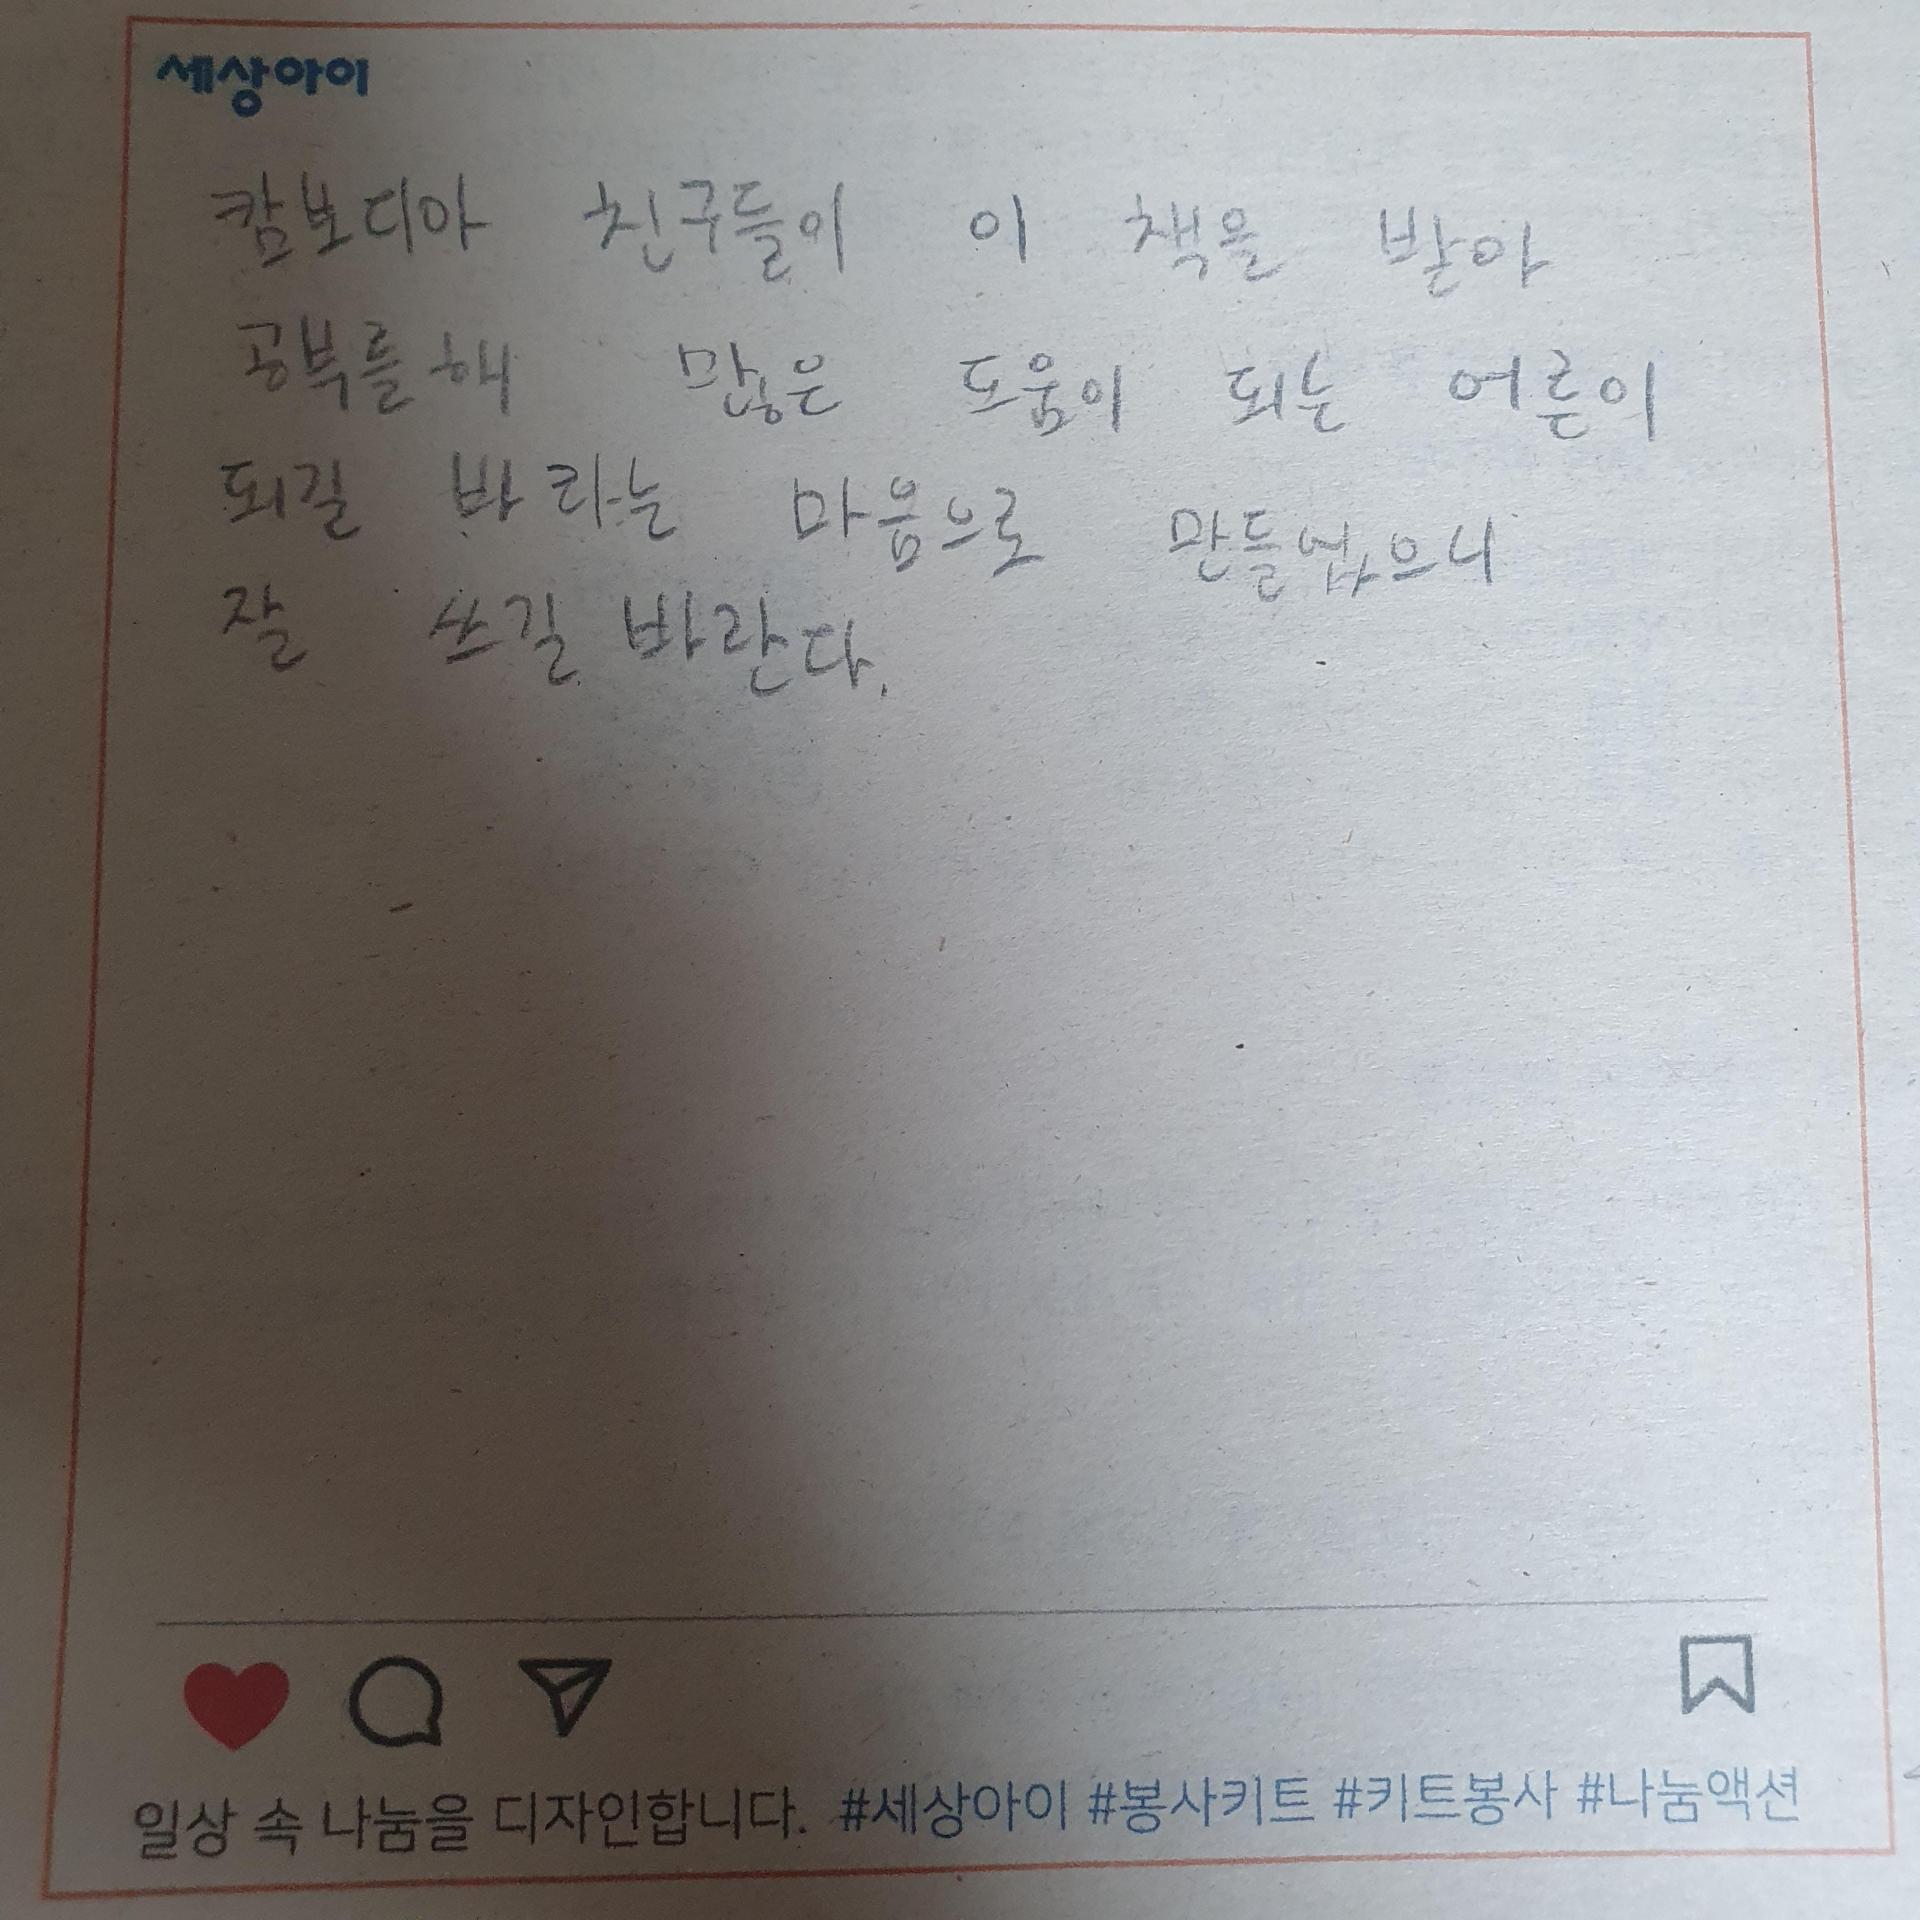 세상아이
캄보디아 친구들이 이 책을 받아
공부를 해 많은 도움이 되는 어른이
되길 바라는 마음으로 만들었으니
잘 쓰길 바란다.
일상 속 나눔을 디자인합니다. #세상아이 #봉사키트 #키트봉사 #나눔액션